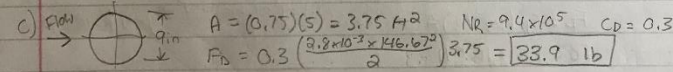 c) Flow → 9in A = (0.75)(5) = 3.75 ft² NR = 9.4x10⁵ CD = 0.3
FD = 0.3 (2.8x10⁻³ x 146.67² / 2) 3.75 = 33.9 lb